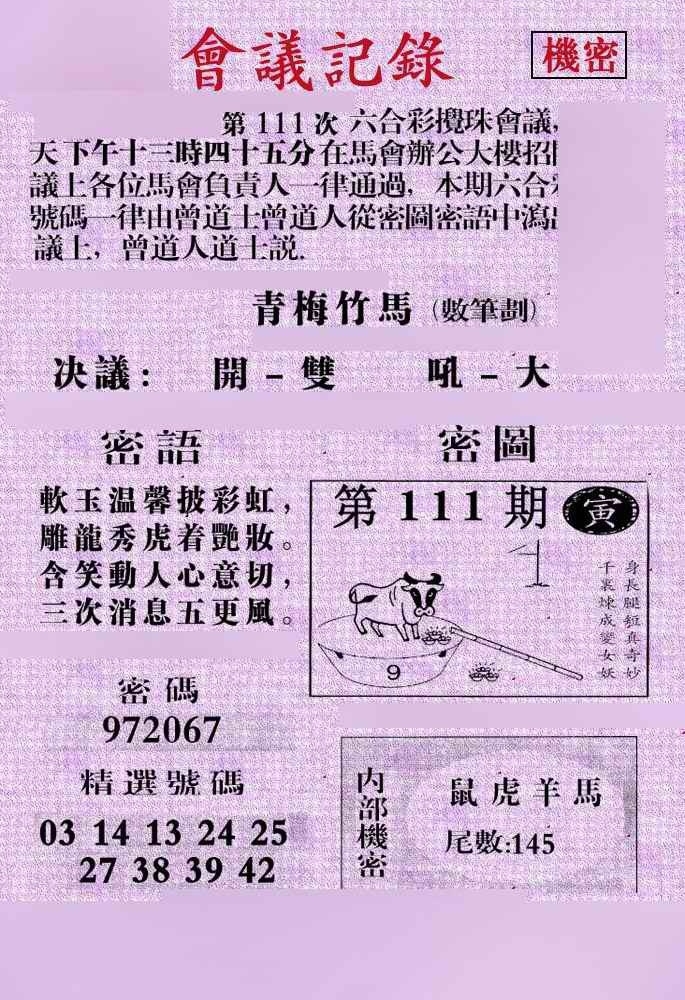 會議記錄
機密
第 111 次 六合彩攪珠會議,
天下午十三時四十五分在馬會辦公大樓招
議上各位馬會負責人一律通過, 本期六合
號碼一律由曾道士曾道人從密圖密語中瀉
議上, 曾道人道士説.
青梅竹馬 (數筆劃)
决議: 開 - 雙 吼 - 大
密語
軟玉温馨披彩虹,
雕龍秀虎着艷妝。
含笑動人心意切,
三次消息五更風。
密圖
第 111 期
寅
身長腿短真奇妙
千裏煉成變女妖
9
密碼
972067
精選號碼
03 14 13 24 25
27 38 39 42
内部機密
鼠虎羊馬
尾數:145